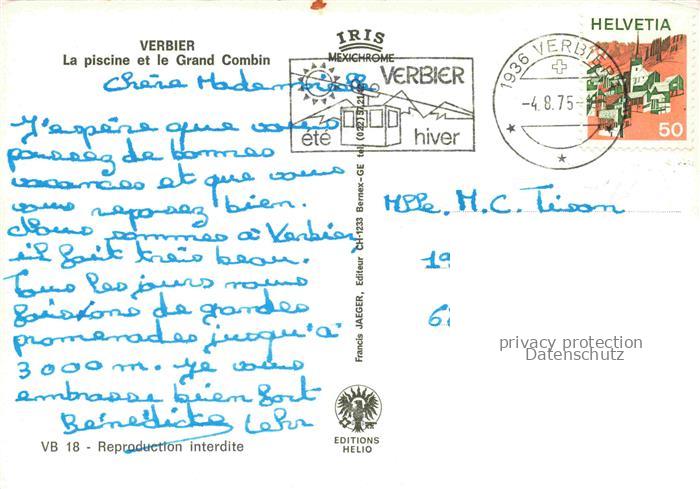 VERBIER
La piscine et le Grand Combin
Chère Mademoiselle
J'espère que vous
passez de bonnes
vacances et que vous
vous reposez bien.
Nous sommes à Verbier,
il fait très beau.
Tous les jours nous
faisons de grandes
promenades jusqu'à
3000 m. Je vous
embrasse bien fort
Bénédicte Lehr
VB 18 - Reproduction interdite
IRIS
MEXICHROME
VERBIER
été hiver
Francis JAEGER, Editeur CH-1233 Bernex-GE tél. (022)
EDITIONS
HELIO
1936 VERBIER
-4.8.75-
HELVETIA
50
Mlle. M. C. Tison
19
6
privacy protection
Datenschutz